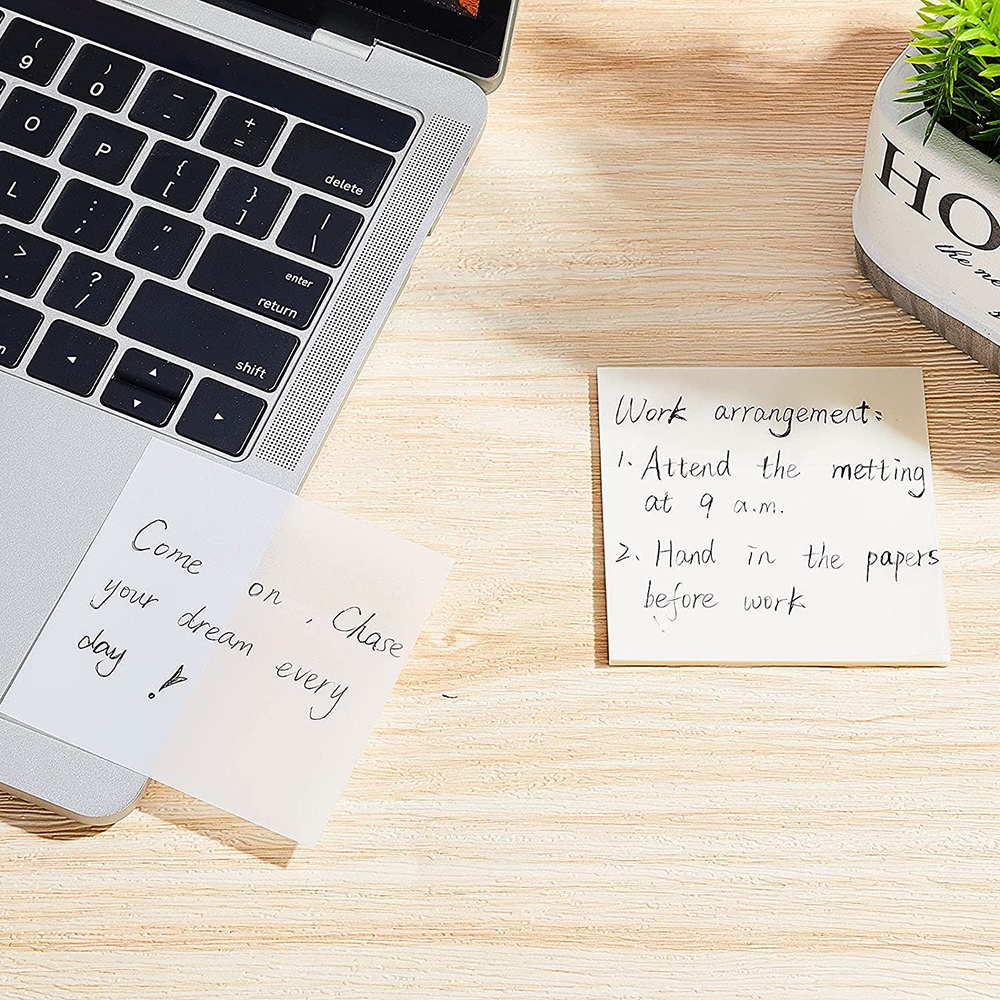 ( 9
) 0
_ -
+ =
delete
O
P
{ [
} ]
| \
L
: ;
" '
enter
return
> .
? /
shift
Come on, Chase
your dream every
day!
Work arrangement:
1. Attend the metting
at 9 a.m.
2. Hand in the papers
before work
HO
the ne